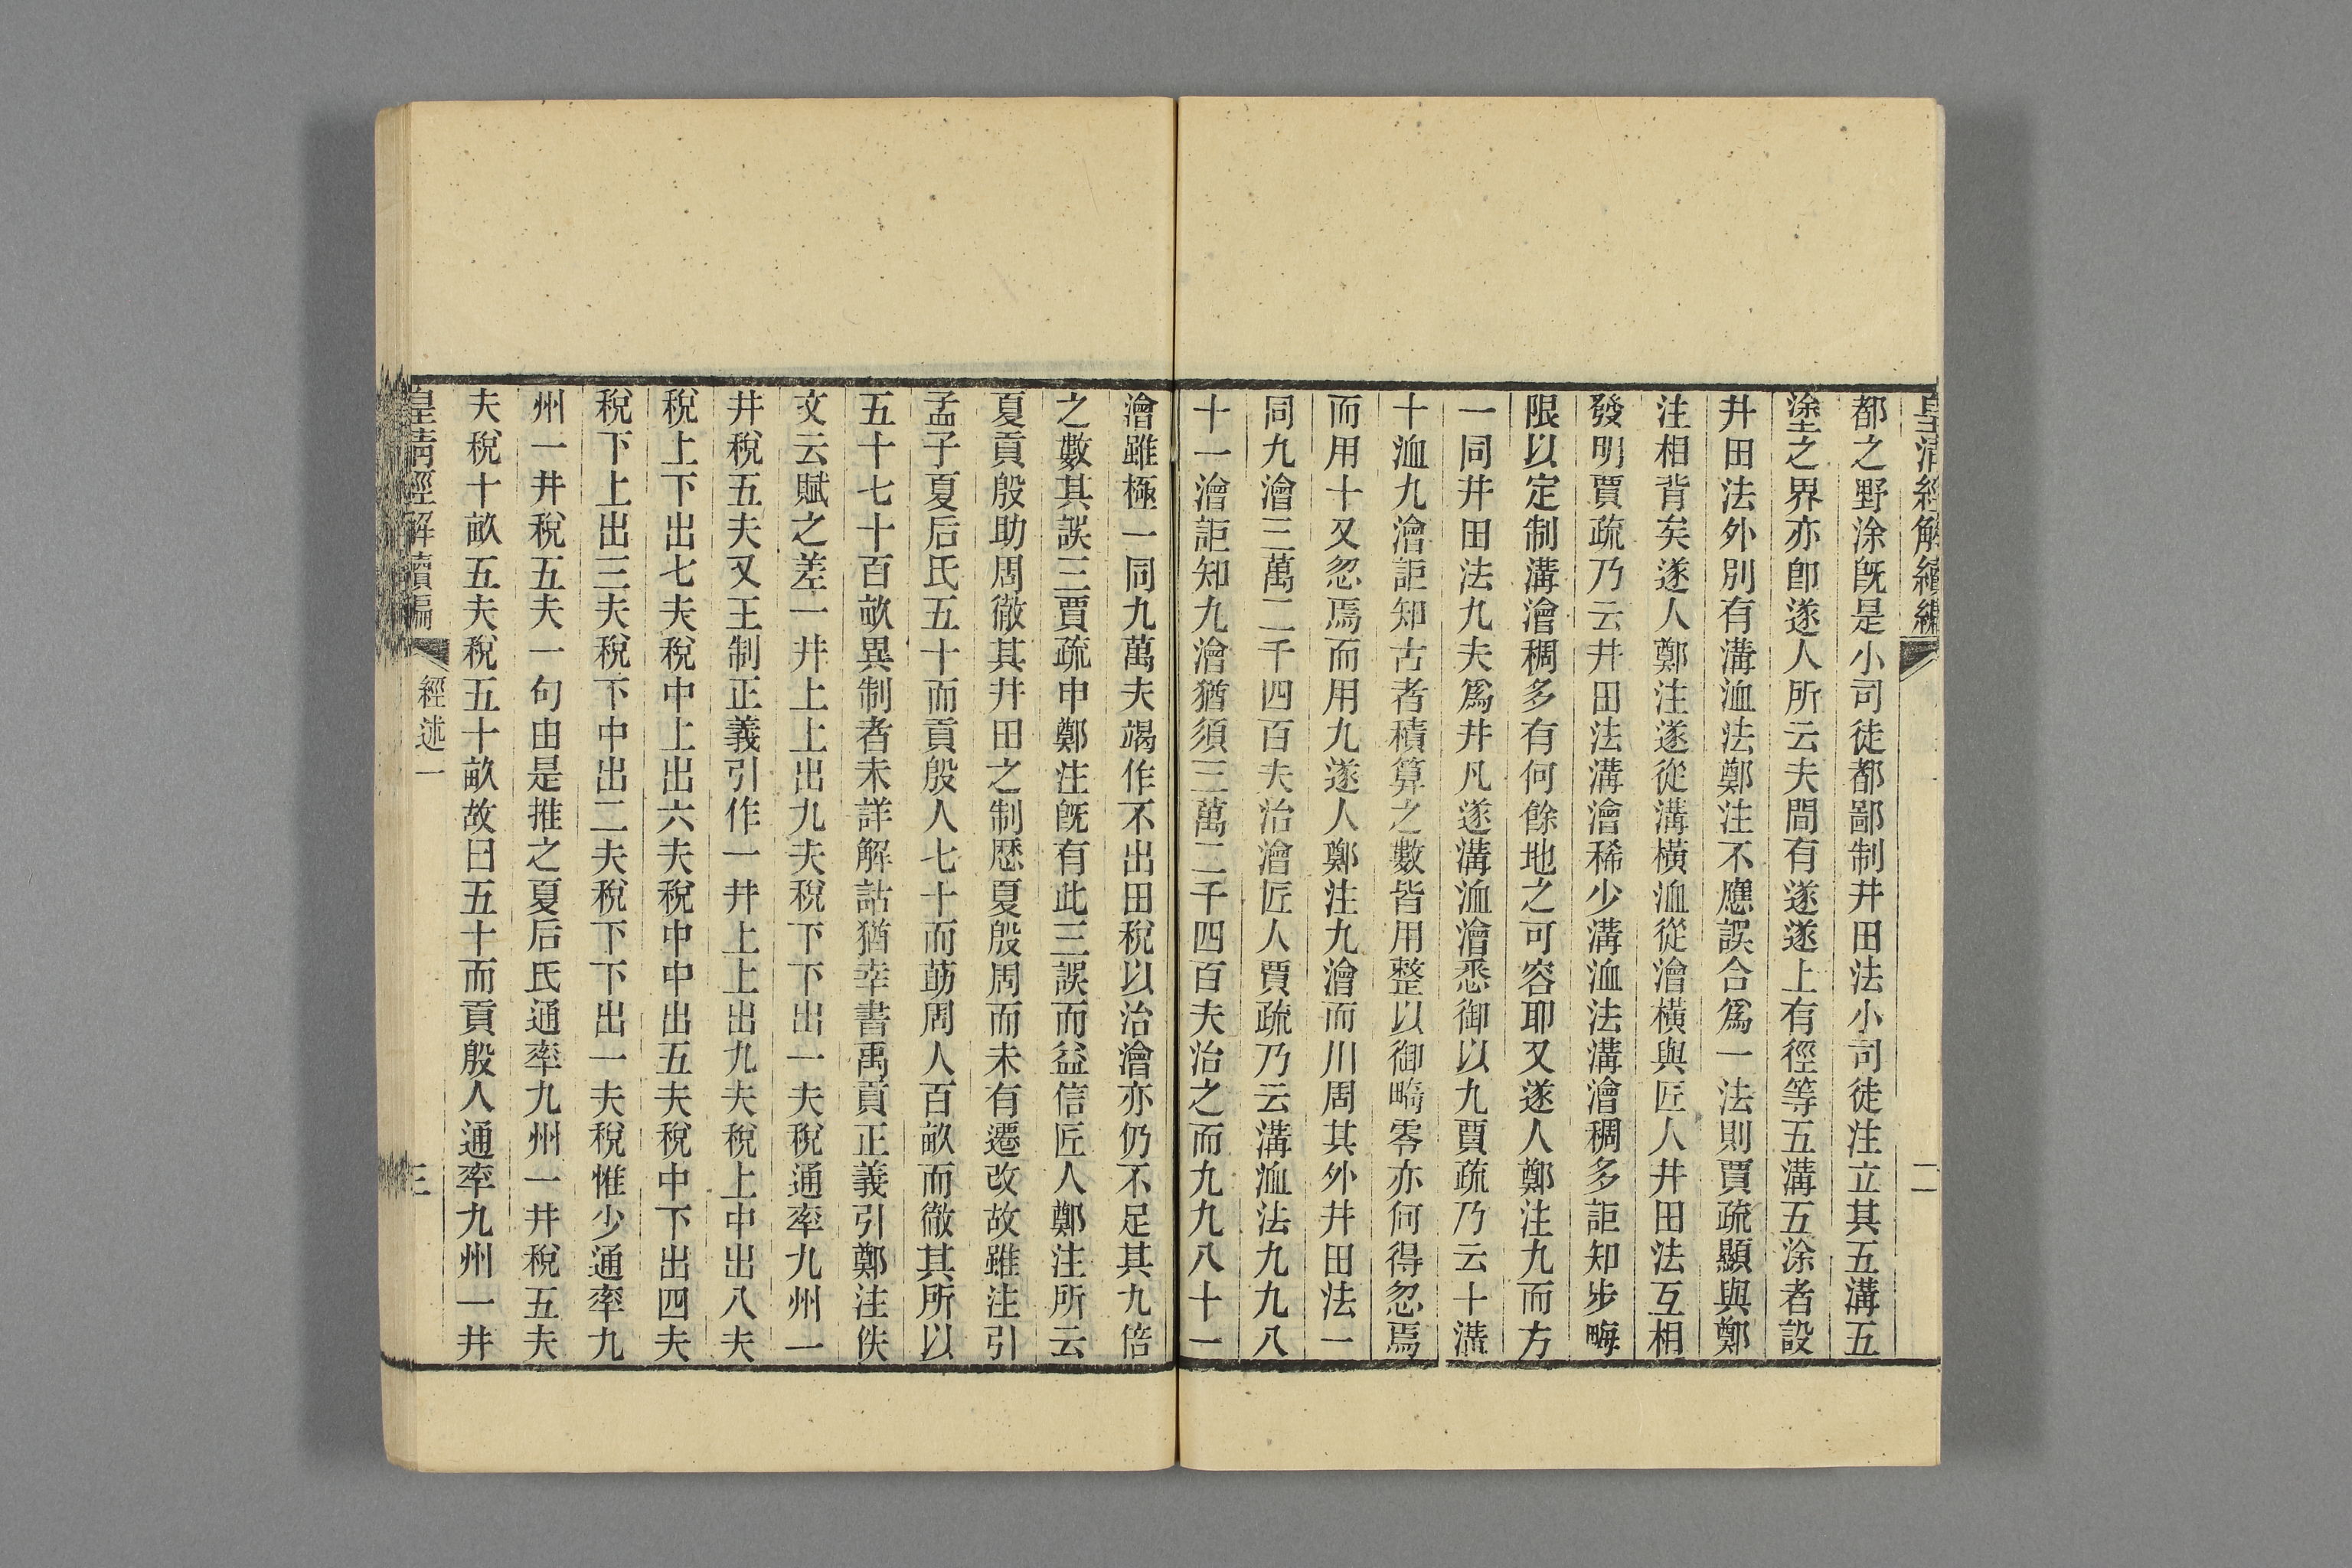 皇清經解續編
二
都之野涂旣是小司徒都鄙制井田法小司徒注立其五溝五
塗之界亦卽遂人所云夫間有遂遂上有徑等五溝五涂者設
井田法外別有溝洫法鄭注不應誤合爲一法則賈疏顯與鄭
注相背矣遂人鄭注遂從溝橫洫從澮橫與匠人井田法互相
發明賈疏乃云井田法溝澮稀少溝洫法溝澮稠多詎知步畮
限以定制溝澮稠多有何餘地之可容耶又遂人鄭注九而方
一同井田法九夫爲井凡遂溝洫澮悉御以九賈疏乃云十溝
十洫九澮詎知古者積算之數皆用整以御畸零亦何得忽焉
而用十又忽焉而用九遂人鄭注九澮而川周其外井田法一
同九澮三萬二千四百夫治澮匠人賈疏乃云溝洫法九九八
十一澮詎知九澮猶須三萬二千四百夫治之而九九八十一
澮雖極一同九萬夫竭作不出田稅以治澮亦仍不足其九倍
之數其誤三賈疏申鄭注旣有此三誤而益信匠人鄭注所云
夏貢殷助周徹其井田之制歷夏殷周而未有遷改故雖注引
孟子夏后氏五十而貢殷人七十而莇周人百畝而徹其所以
五十七十百畝異制者未詳解詁猶幸書禹貢正義引鄭注佚
文云賦之差一井上上出九夫稅下下出一夫稅通率九州一
井稅五夫又王制正義引作一井上上出九夫稅上中出八夫
稅上下出七夫稅中上出六夫稅中中出五夫稅中下出四夫
稅下上出三夫稅下中出二夫稅下下出一夫稅惟少通率九
州一井稅五夫一句由是推之夏后氏通率九州一井稅五夫
夫稅十畝五夫稅五十畝故曰五十而貢殷人通率九州一井
皇清經解續編
經述一
三